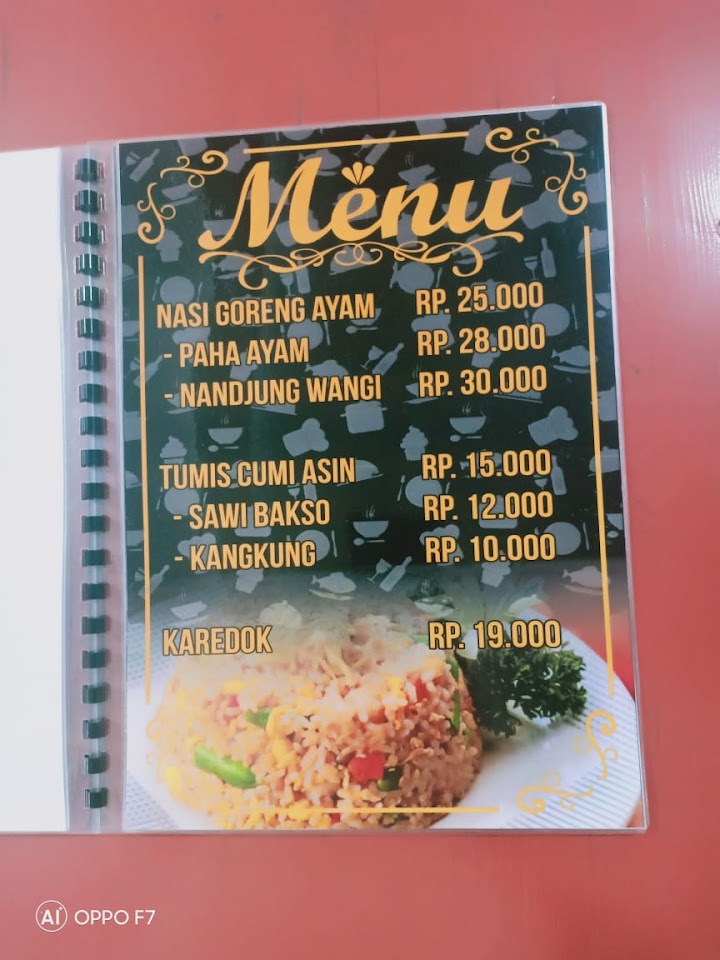 Menu
NASI GORENG AYAM RP. 25.000
- PAHA AYAM RP. 28.000
- NANDJUNG WANGI RP. 30.000
TUMIS CUMI ASIN RP. 15.000
- SAWI BAKSO RP. 12.000
- KANGKUNG RP. 10.000
KAREDOK RP. 19.000
AI OPPO F7